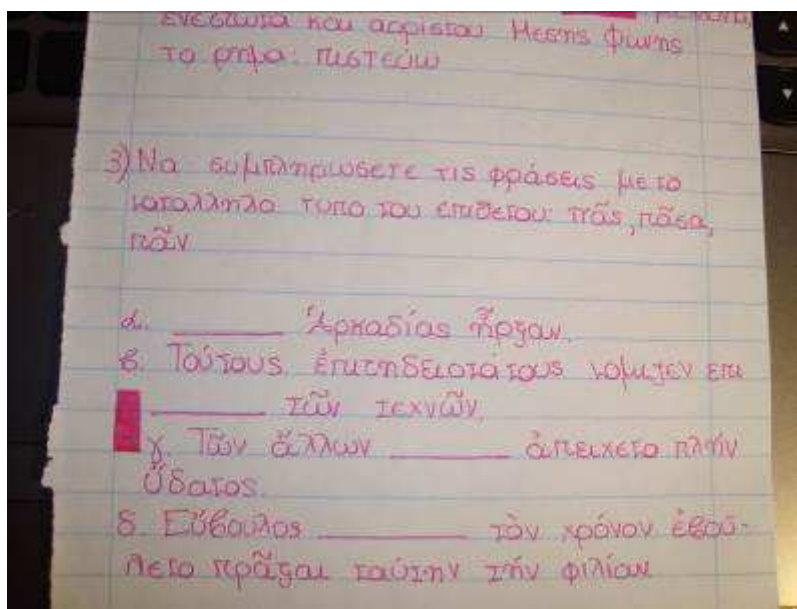 ενεστωτα και αορίστου Μεσης Φωνης
το ρημα: πιστεύω
3) Να συμπληρωσετε τις φράσεις με το
καταλληλο τυπο του επιθετου: πᾶς, πᾶσα,
πᾶν
α. ______ Ἀρκαδίας ἦρξαν.
β. Τούτους ἐπιτηδειοτάτους νομιζεν επι
______ τῶν τεχνῶν.
γ. Τῶν ἄλλων ______ ἀπειχετο πλήν
ὕδατος.
δ. Εὔβουλος ______ τὸν χρόνον ἐβού-
λετο πρᾶξαι ταύτην τήν φιλίαν